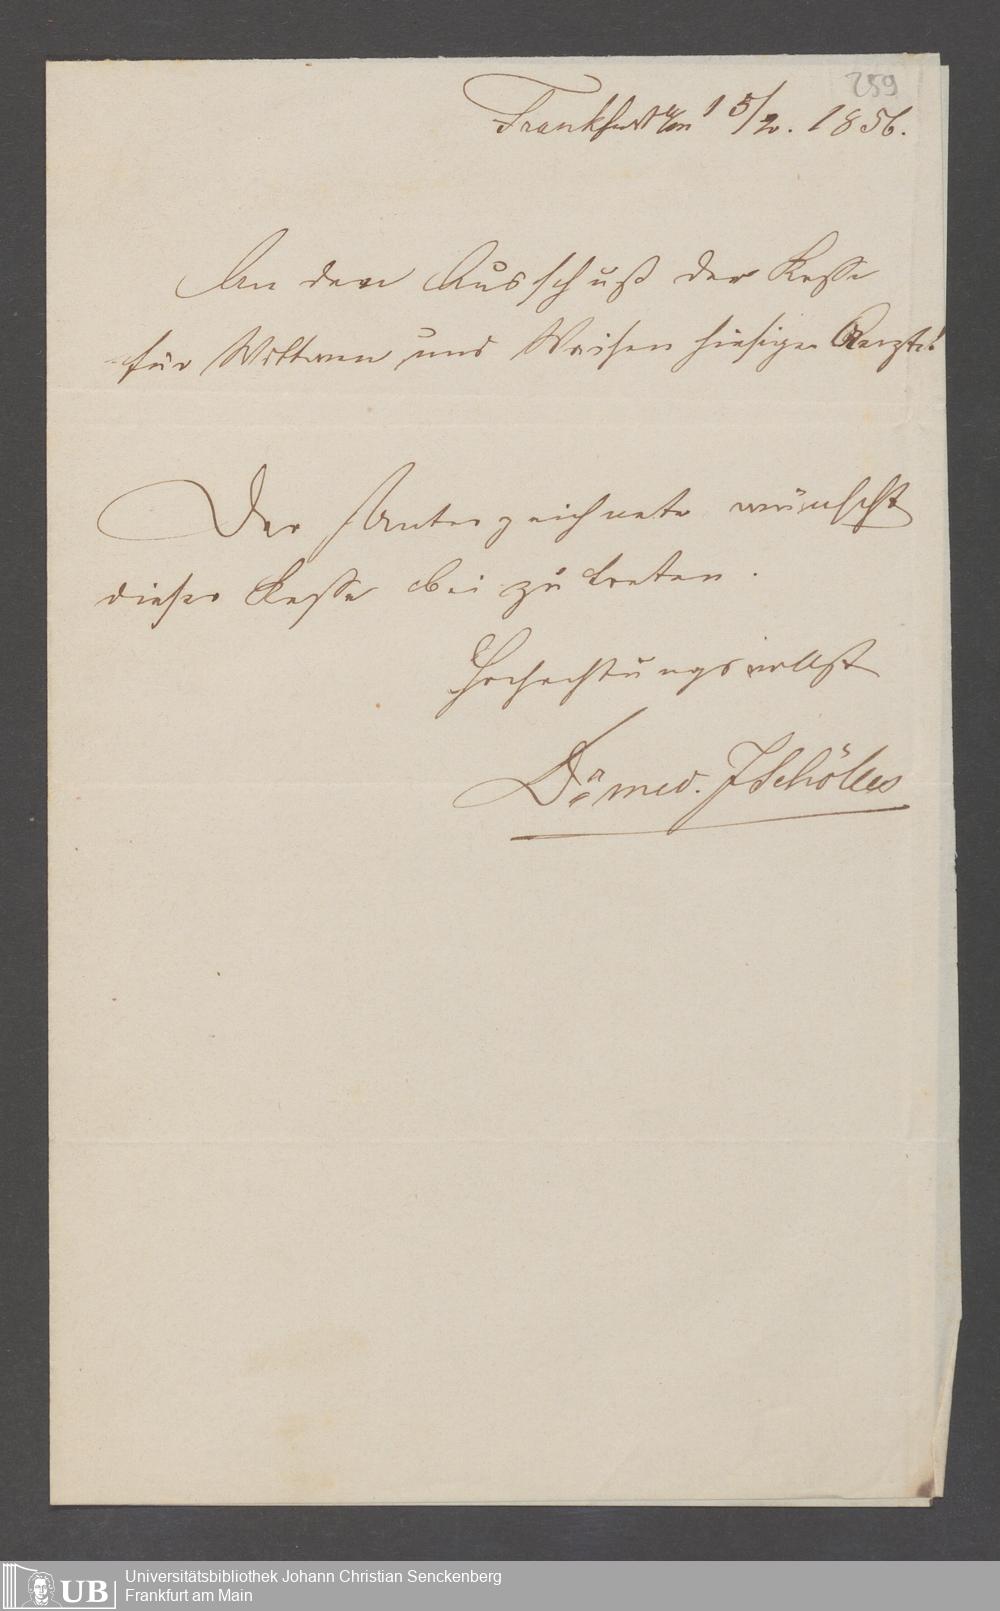 259
Frankfurt a/m 15/2. 1856.
An den Ausschuß der Kasse
für Wittwen und Waisen hiesiger Aerzte!
Der Unterzeichnete wünscht
dieser Kasse bei zu treten.
Hochachtungsvollst
Dr. med. J Schölles
UB
Universitätsbibliothek Johann Christian Senckenberg
Frankfurt am Main